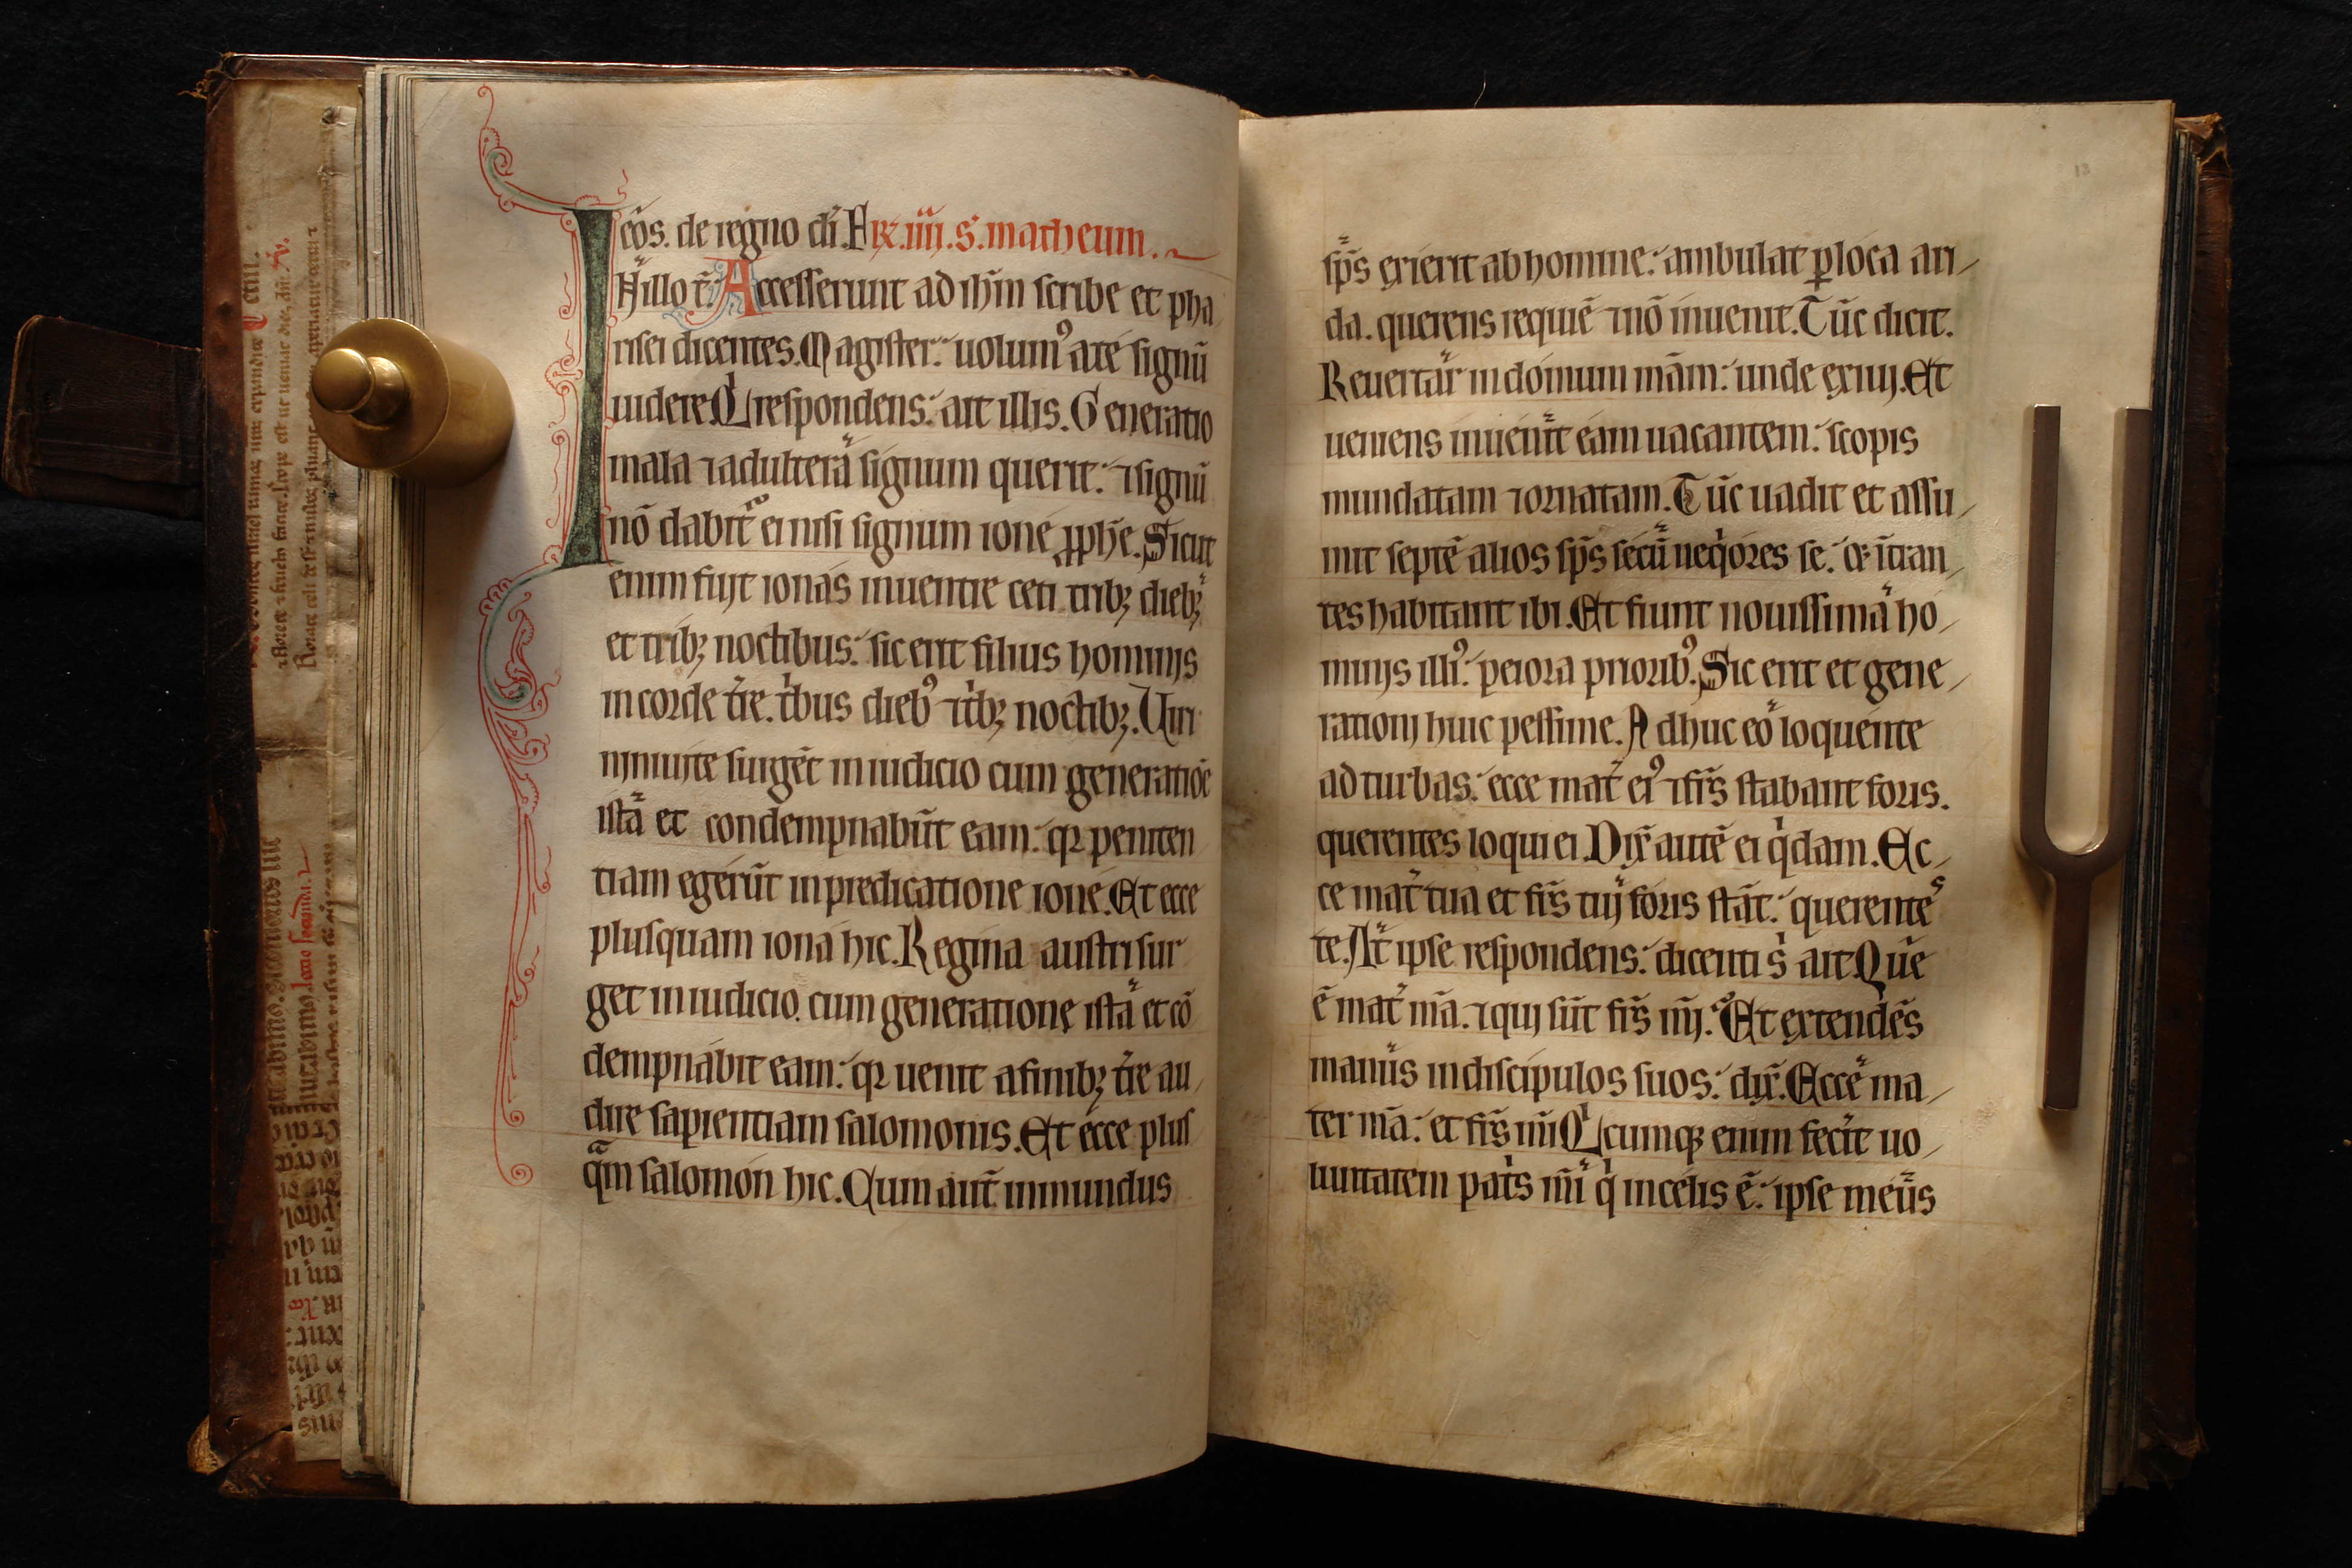 eos. de regno di. Fr. iiii. s. matheum.
IN illo t̄. Accesserunt ad ihm scribe et pha
risei dicentes. Magister: uolumꝰ a te signū
uidere. Qͥ respondens: ait illis. Generatio
mala ⁊ adultera signum querit: ⁊ signū
nō dabit̃ ei nisi signum ione ꝓphe. Sicut
enim fuit ionas in uentre ceti tribꝫ diebꝫ
et tribꝫ noctibus: sic erit filius hominis
in corde t̄re. tͥbus diebꝰ ⁊ tͥbꝫ noctibꝫ. Uiri
niniuite surgēt in iudicio cum generatiōe
ista et condempnabūt eam: qꝛ peniten
tiam egerūt in predicatione ione. Et ecce
plusquam iona hic. Regina austri sur
get in iudicio. cum generatione ista et cō
dempnabit eam: qꝛ uenit a finibꝫ t̄re au/
dire sapientiam salomonis. Et ecce plus
qͣm salomon hic. Cum aut̄ inmundus
sp̄s exierit ab homine: ambulat ꝑ loca ari/
da. querens requiē ⁊ nō inuenit. Tūc dicit.
Reuertar in domum mām: unde exiui. Et
ueniens inuenit eam uacantem: scopis
mundatam ⁊ ornatam. Tūc uadit et assu/
mit septē alios sp̄s secū neqͥores se: ⁊ īt̄an/
tes habitant ibi. Et fiunt nouissima ho/
minis illiꝰ: peiora prioribꝰ. Sic erit et gene/
rationi huic pessime. Adhuc eo loquente
ad turbas: ecce mat̄ eiꝰ ⁊ fr̄s stabant foris.
querentes loqui ei. Dix̄ autē ei qͥdam. Ec/
ce mat̄ tua et fr̄s tui foris stāt: querentes
te. At ipse respondens: dicenti sͥ ait. Que
ē mat̄ mā. ⁊ qui sūt fr̄s mī. Et extendēs
manus in discipulos suos: dix̄. Ecce ma/
ter mā: et fr̄s mī. Qͥcumqꝫ enim fecit uo/
luntatem patͥs mī qͥ in celis ē: ipse meus